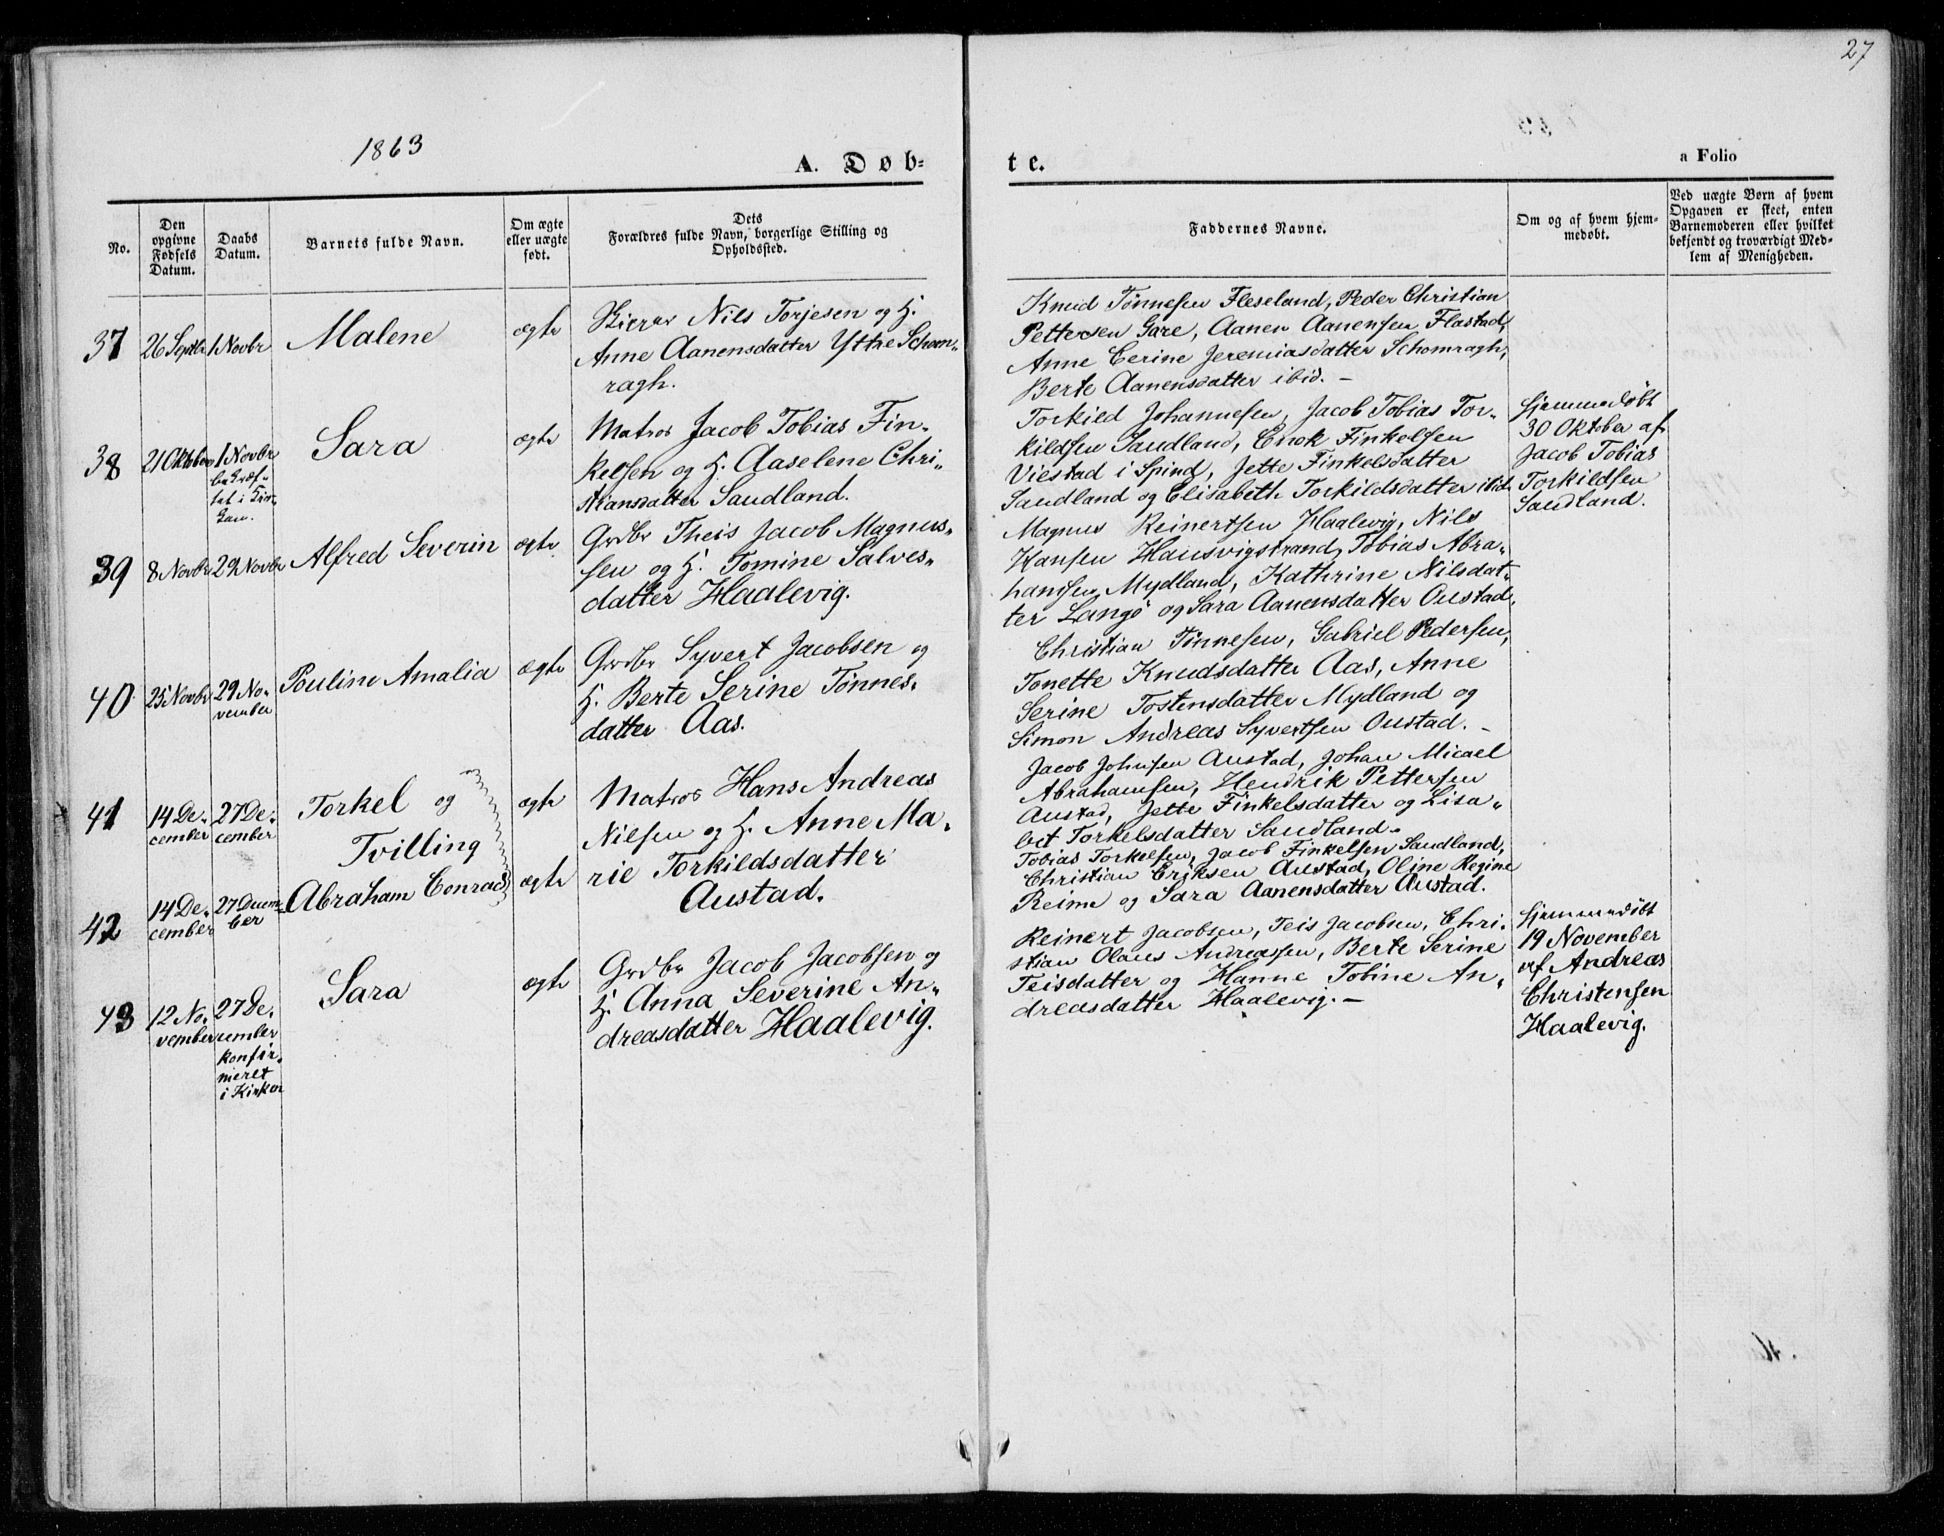 27
1863
A. Døb-
te.
a Folio
No.
Den opgivne Fødsels Datum.
Daabs Datum.
Barnets fulde Navn.
Om ægte eller uægte født.
Dets Forældres fulde Navn, borgerlige Stilling og Opholdssted.
Faddernes Navne.
Om og af hvem hjem-
medøbt.
Ved uægte Børn af hvem
Opgaven er skeet, enten
Barnemoderen eller hvilket
bekjendt og troværdigt Med-
lem af Menigheden.
37
26 Septbr
1 Novbr
Malene
ægte
Nils Torjesen og H.
Anne Aanensdatter Yttre Schom-
ragh.
Knud Tønnesen Fleseland, Peder Christian
Pettersen Gare, Aanen Aanensen Flastad,
Anne Cerine Jeremiasdatter Schomragh,
Berte Aanensdatter ibid. -
38
21 Oktober
1 Novbr
Sara
ægte
Matros Jacob Tobias Fin-
kelsen og H. Aaselene Chri-
stiansdatter Saudland.
Torkild Johannesen, Jacob Tobias Tor-
kildsen Saudland, Enok Finkelsen
Viestad i Spind, Jette Finkelsdatter
Saudland og Elisabeth Torkildsdatter ibid
Hjemmedøbt
30 Oktober af
Jacob Tobias
Torkildsen
Saudland.
39
8 Novbr
29 Novbr
Alfred Severin
ægte
Grdbr Theis Jacob Magnus-
sen og H. Tomine Salves-
datter Haalevig.
Magnus Reinertsen Haalevig, Nils
Hansen Hausvigstrand, Tobias Abra-
hamsen Mydland, Kathrine Nilsdat-
ter Langö og Sara Aanensdatter Oustad.
40
25 Novbr
29 No-
vember
Pouline Amalia
ægte
Grdbr Syvert Jacobsen og
H. Berte Serine Tønnes-
datter Aas.
Christian Tönnesen, Gabriel Pedersen,
Tonette Knudsdatter Aas, Anne
Serine Tostensdatter Mydland og
Simon Andreas Syvertsen Oustad. -
41
14 De-
cember
27 De-
cember
Torkel og
Tvilling
ægte
Matros Hans Andreas
Nilsen og H. Anne Ma-
rie Torkildsdatter
Austad.
Jacob Johnsen Austad, Johan Micael
Abrahamsen, Hendrik Pettersen
Austad, Jette Finkelsdatter og Lisa-
bet Torkelsdatter Saudland.
42
14 De-
cember
27 Decem-
ber
Abraham Conrad
ægte
Tobias Torkelsen, Jacob Finkelsen Saudland,
Christian Eriksen Austad, Oline Regine
Reime og Sara Aanensdatter Austad.
43
12 No-
vember
27 De-
cember
konfir-
meret
i Kirken
Sara
ægte
Grdbr Jacob Jacobsen og
H. Anna Severine An-
dreasdatter Haalevig.
Reinert Jacobsen, Teis Jacobsen, Chri-
stian Olaus Andreassen, Berte Serine
Teisdatter og Hanne Tobine An-
dreasdatter Haalevig. -
Hjemmedöbt
19 November
af Andreas
Christensen
Haalevig.